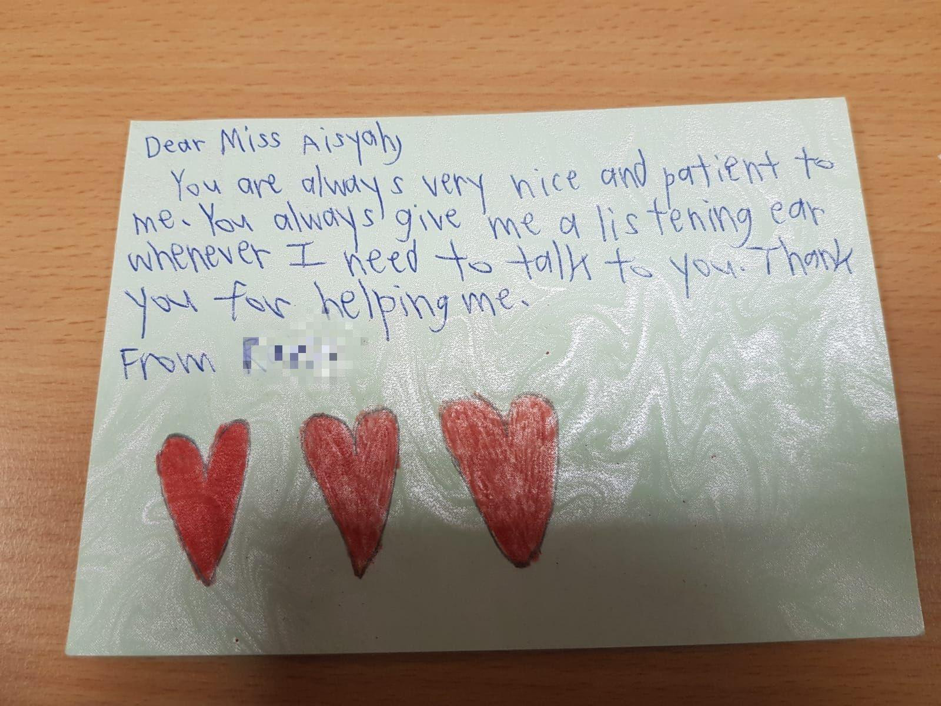 Dear Miss Aisyah,
You are always very nice and patient to
me. You always give me a listening ear
whenever I need to talk to you. Thank
you for helping me.
From